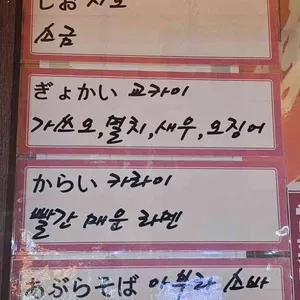 しお 시오
소금
ぎょかい 교카이
가쓰오,멸치,새우,오징어
からい 카라이
빨간 매운 라멘
あぶらそば 아부라 소바